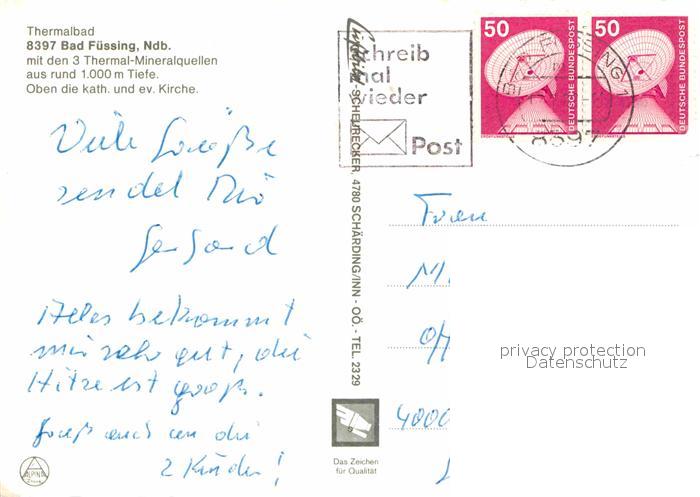 Thermalbad
8397 Bad Füssing, Ndb.
mit den 3 Thermal-Mineralquellen
aus rund 1.000 m Tiefe.
Oben die kath. und ev. Kirche.
Viele Grüße
sendet Dir
Gerhard
Alles bekommt
mir sehr gut, die
Hitze ist groß.
Gruß auch an die
2 Kinder!
ALPINA
SCHEURECKER, 4780 SCHÄRDING/INN - OÖ. - TEL. 2329
Das Zeichen
für Qualität
Schreib
mal
wieder
Post
50
DEUTSCHE BUNDESPOST
50
DEUTSCHE BUNDESPOST
8397
Frau
M
4000
privacy protection
Datenschutz